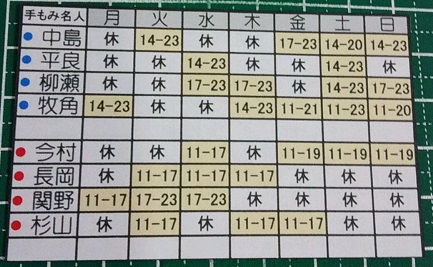 手もみ名人 月 火 水 木 金 土 日
中島 休 14-23 休 休 17-23 14-20 14-23
平良 休 休 14-23 休 休 14-23 休
柳瀬 休 休 17-23 17-23 休 14-23 17-23
牧角 14-23 休 休 14-23 11-21 11-23 11-20
今村 休 休 11-17 休 11-19 11-19 11-19
長岡 休 11-17 11-17 11-17 休 休 休
関野 11-17 17-23 17-23 休 休 休 休
杉山 休 11-17 休 11-17 11-17 休 休